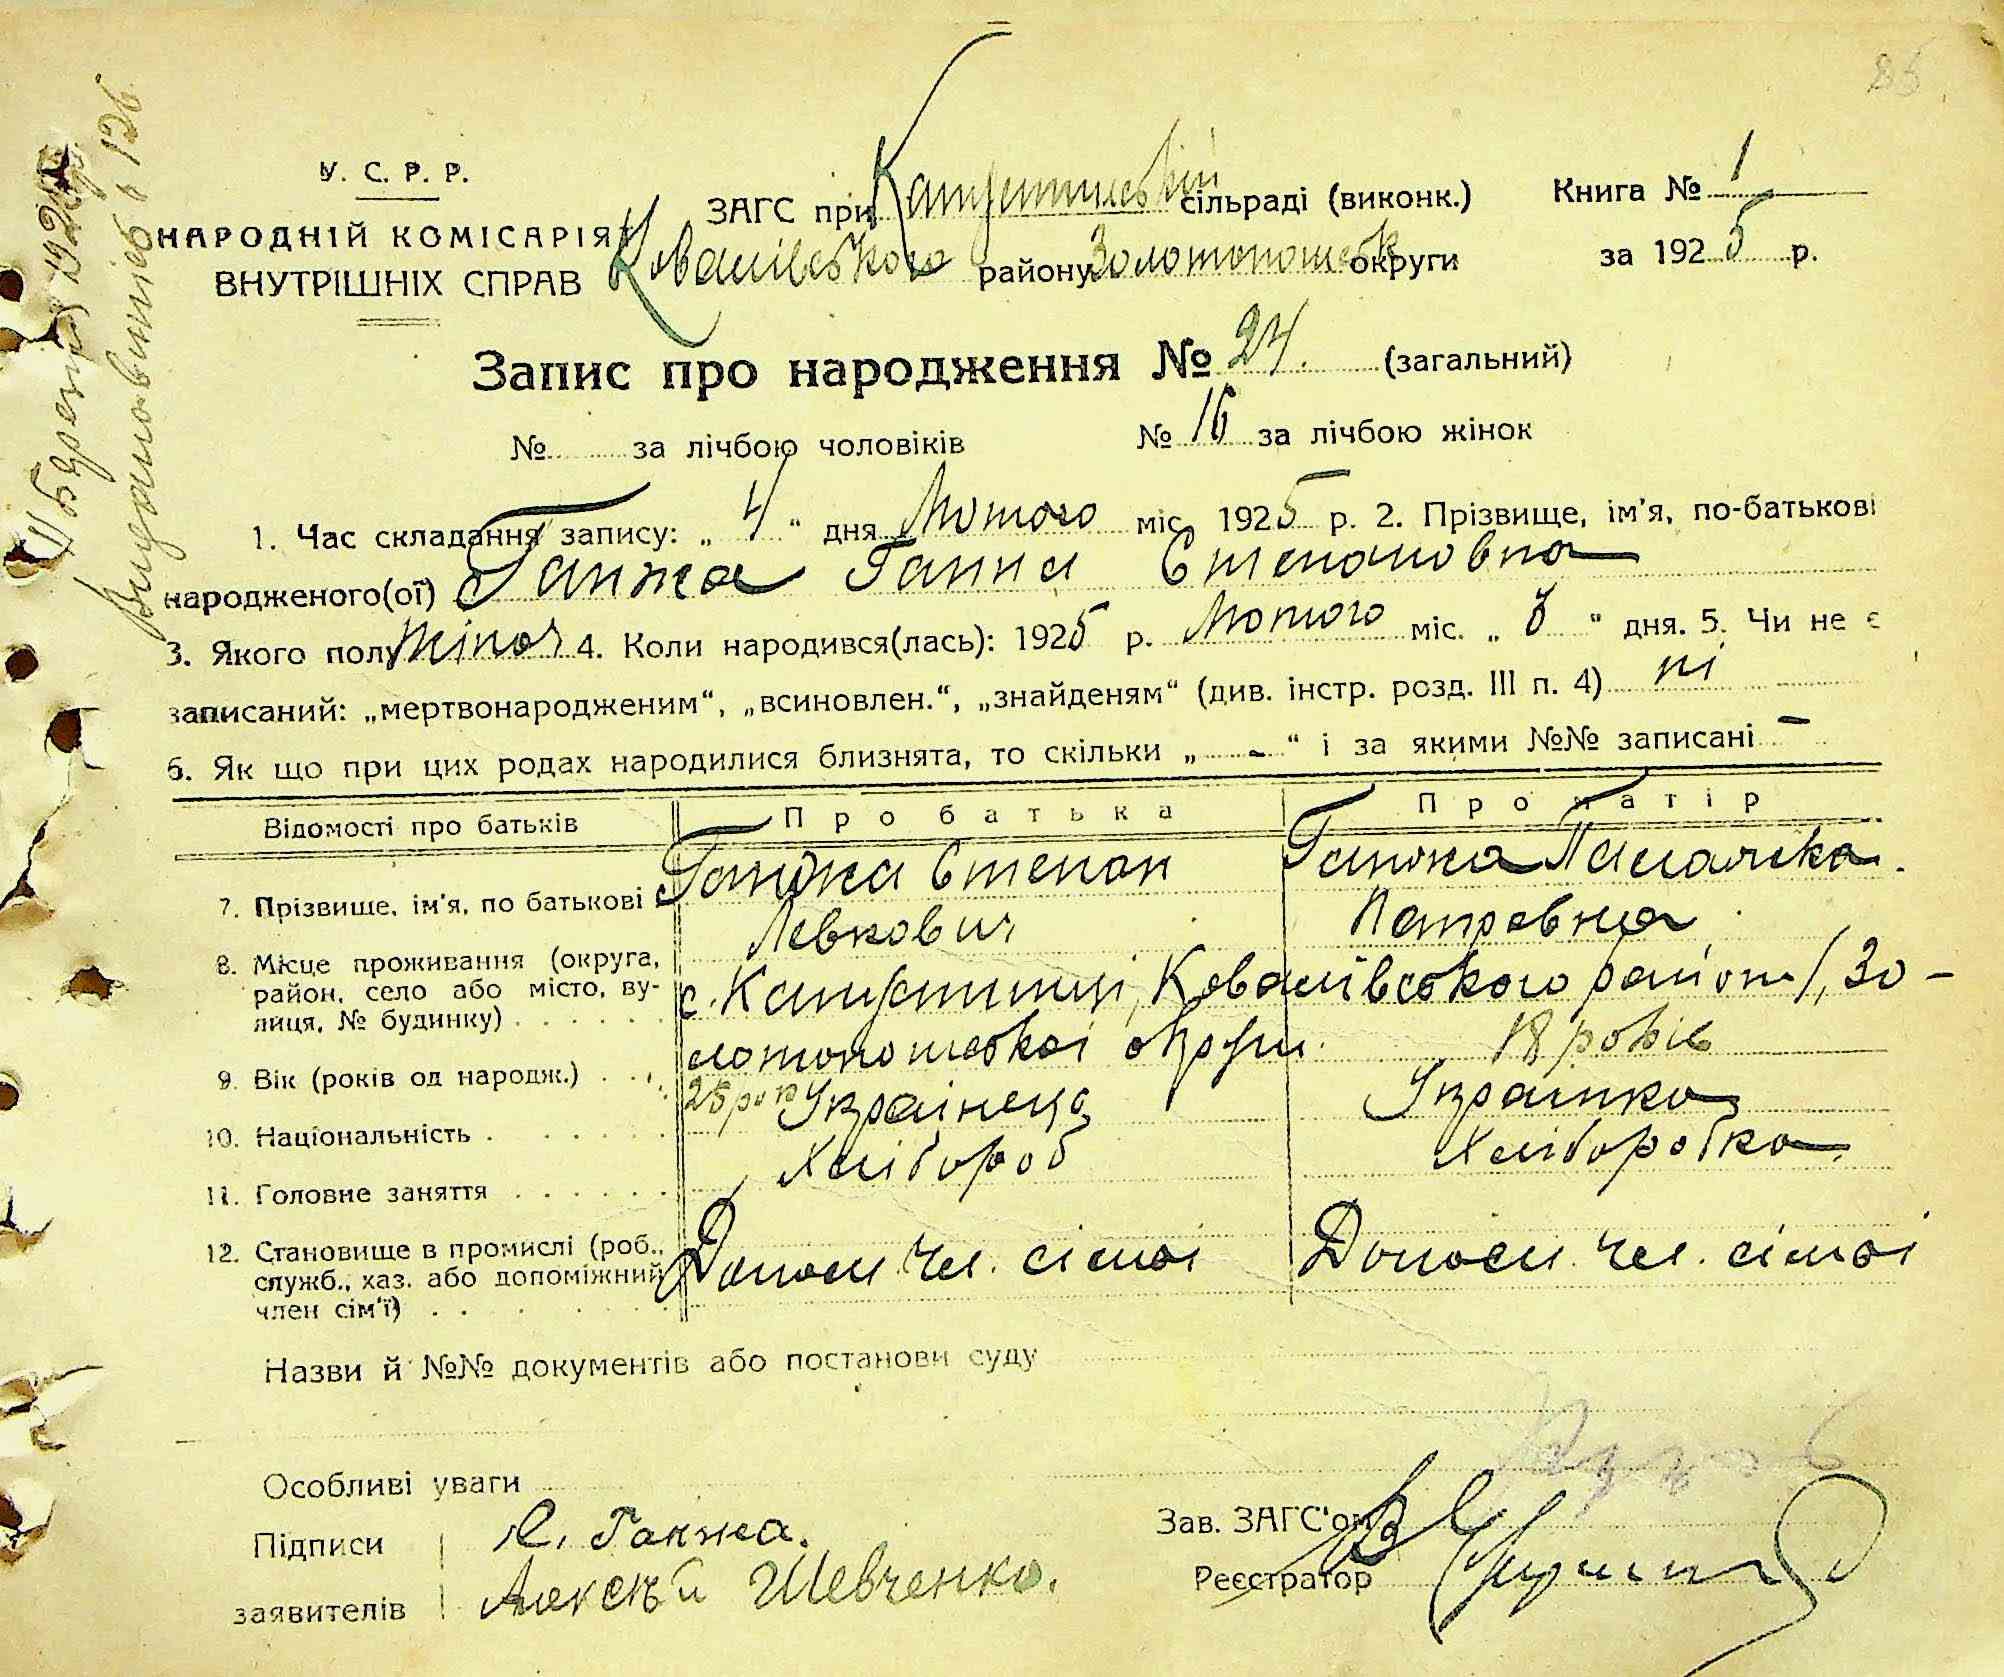 У. С. Р. Р.
НАРОДНІЙ КОМІСАРІЯТ
ВНУТРІШНІХ СПРАВ
ЗАГС при Капустинській сільраді (виконк.)
Ковалівського району Золотоношськ округи
Книга № 1
за 1925 р.
Запис про народження № 24. (загальний)
№ за лічбою чоловіків № 16 за лічбою жінок
1. Час складання запису: „ 4 “ дня Лютого міс. 1925 р. 2. Прізвище, ім'я, по-батькові
народженого(ої) Ганжа Ганна Степановна
3. Якого полу жіноч 4. Коли народився(лась): 1925 р. Лютого міс. „ 3 “ дня. 5. Чи не є
записаний: „мертвонародженим“, „всиновлен.“, „знайденям“ (див. інстр. розд. III п. 4) ні
6. Як що при цих родах народилися близнята, то скільки „ - “ і за якими №№ записані -
Відомості про батьків Про батька Про матір
7. Прізвище, ім'я, по батькові Ганжа Степан Ганжа
Левкович Петровна
8. Місце проживання (округа,
район, село або місто, ву-
лиця, № будинку)
с. Капустинці, Ковалівського району, Зо-
лотоношської округи.
9. Вік (років од народж.) 25 рок 18 років
10. Національність Українець Українка
11. Головне заняття Хлібороб Хліборобка
12. Становище в промислі (роб.,
служб., хаз. або допоміжний
член сім'ї)
Допом. чл. сімьі Допом. чл. сімьі
Назви й №№ документів або постанови суду
Особливі уваги
Підписи
заявителів
С. Ганжа.
Алексѣй Шевченко.
Зав. ЗАГС'ом
Реєстратор